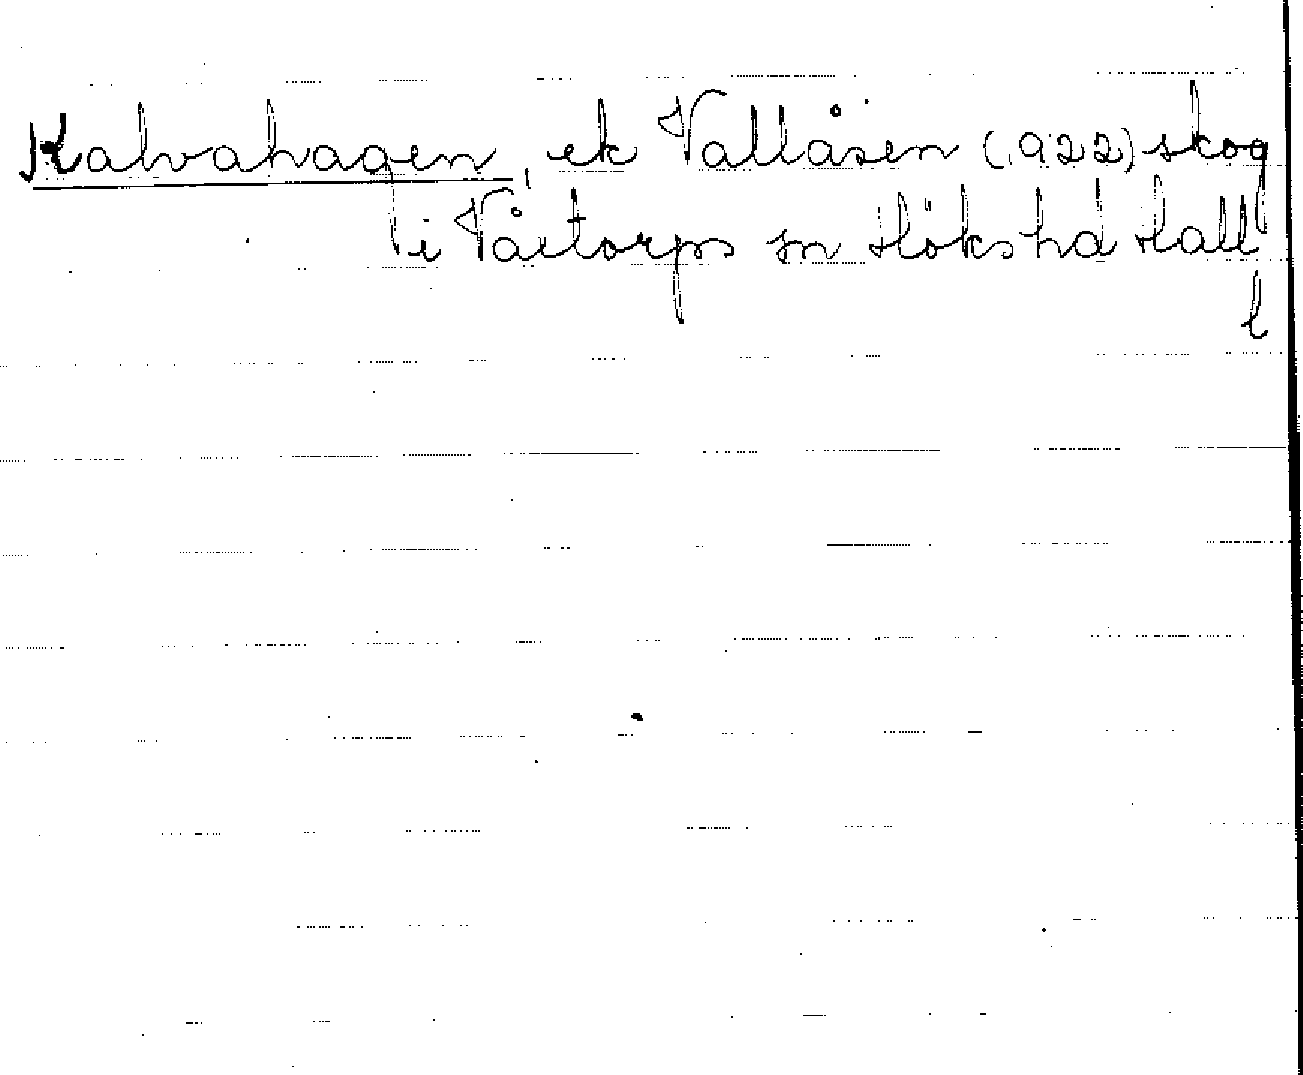 Kalvahagen, ek Vallåsen (1922) skog
i Våxtorps sn Höks hd Hall
l